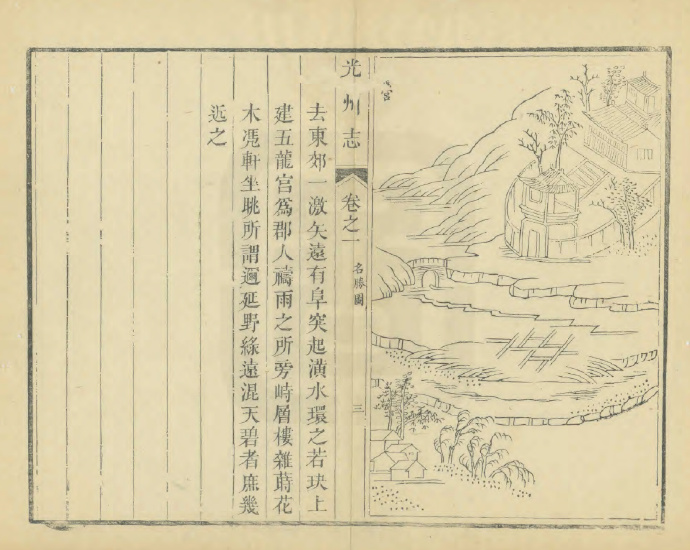 宮
光州志
卷之一
名勝圖
三
去東郊一激矢遠有阜突起潢水環之若玦上
建五龍宮爲郡人禱雨之所旁峙層樓雜蒔花
木凴軒坐眺所謂邇延野綠遠混天碧者庶幾
近之